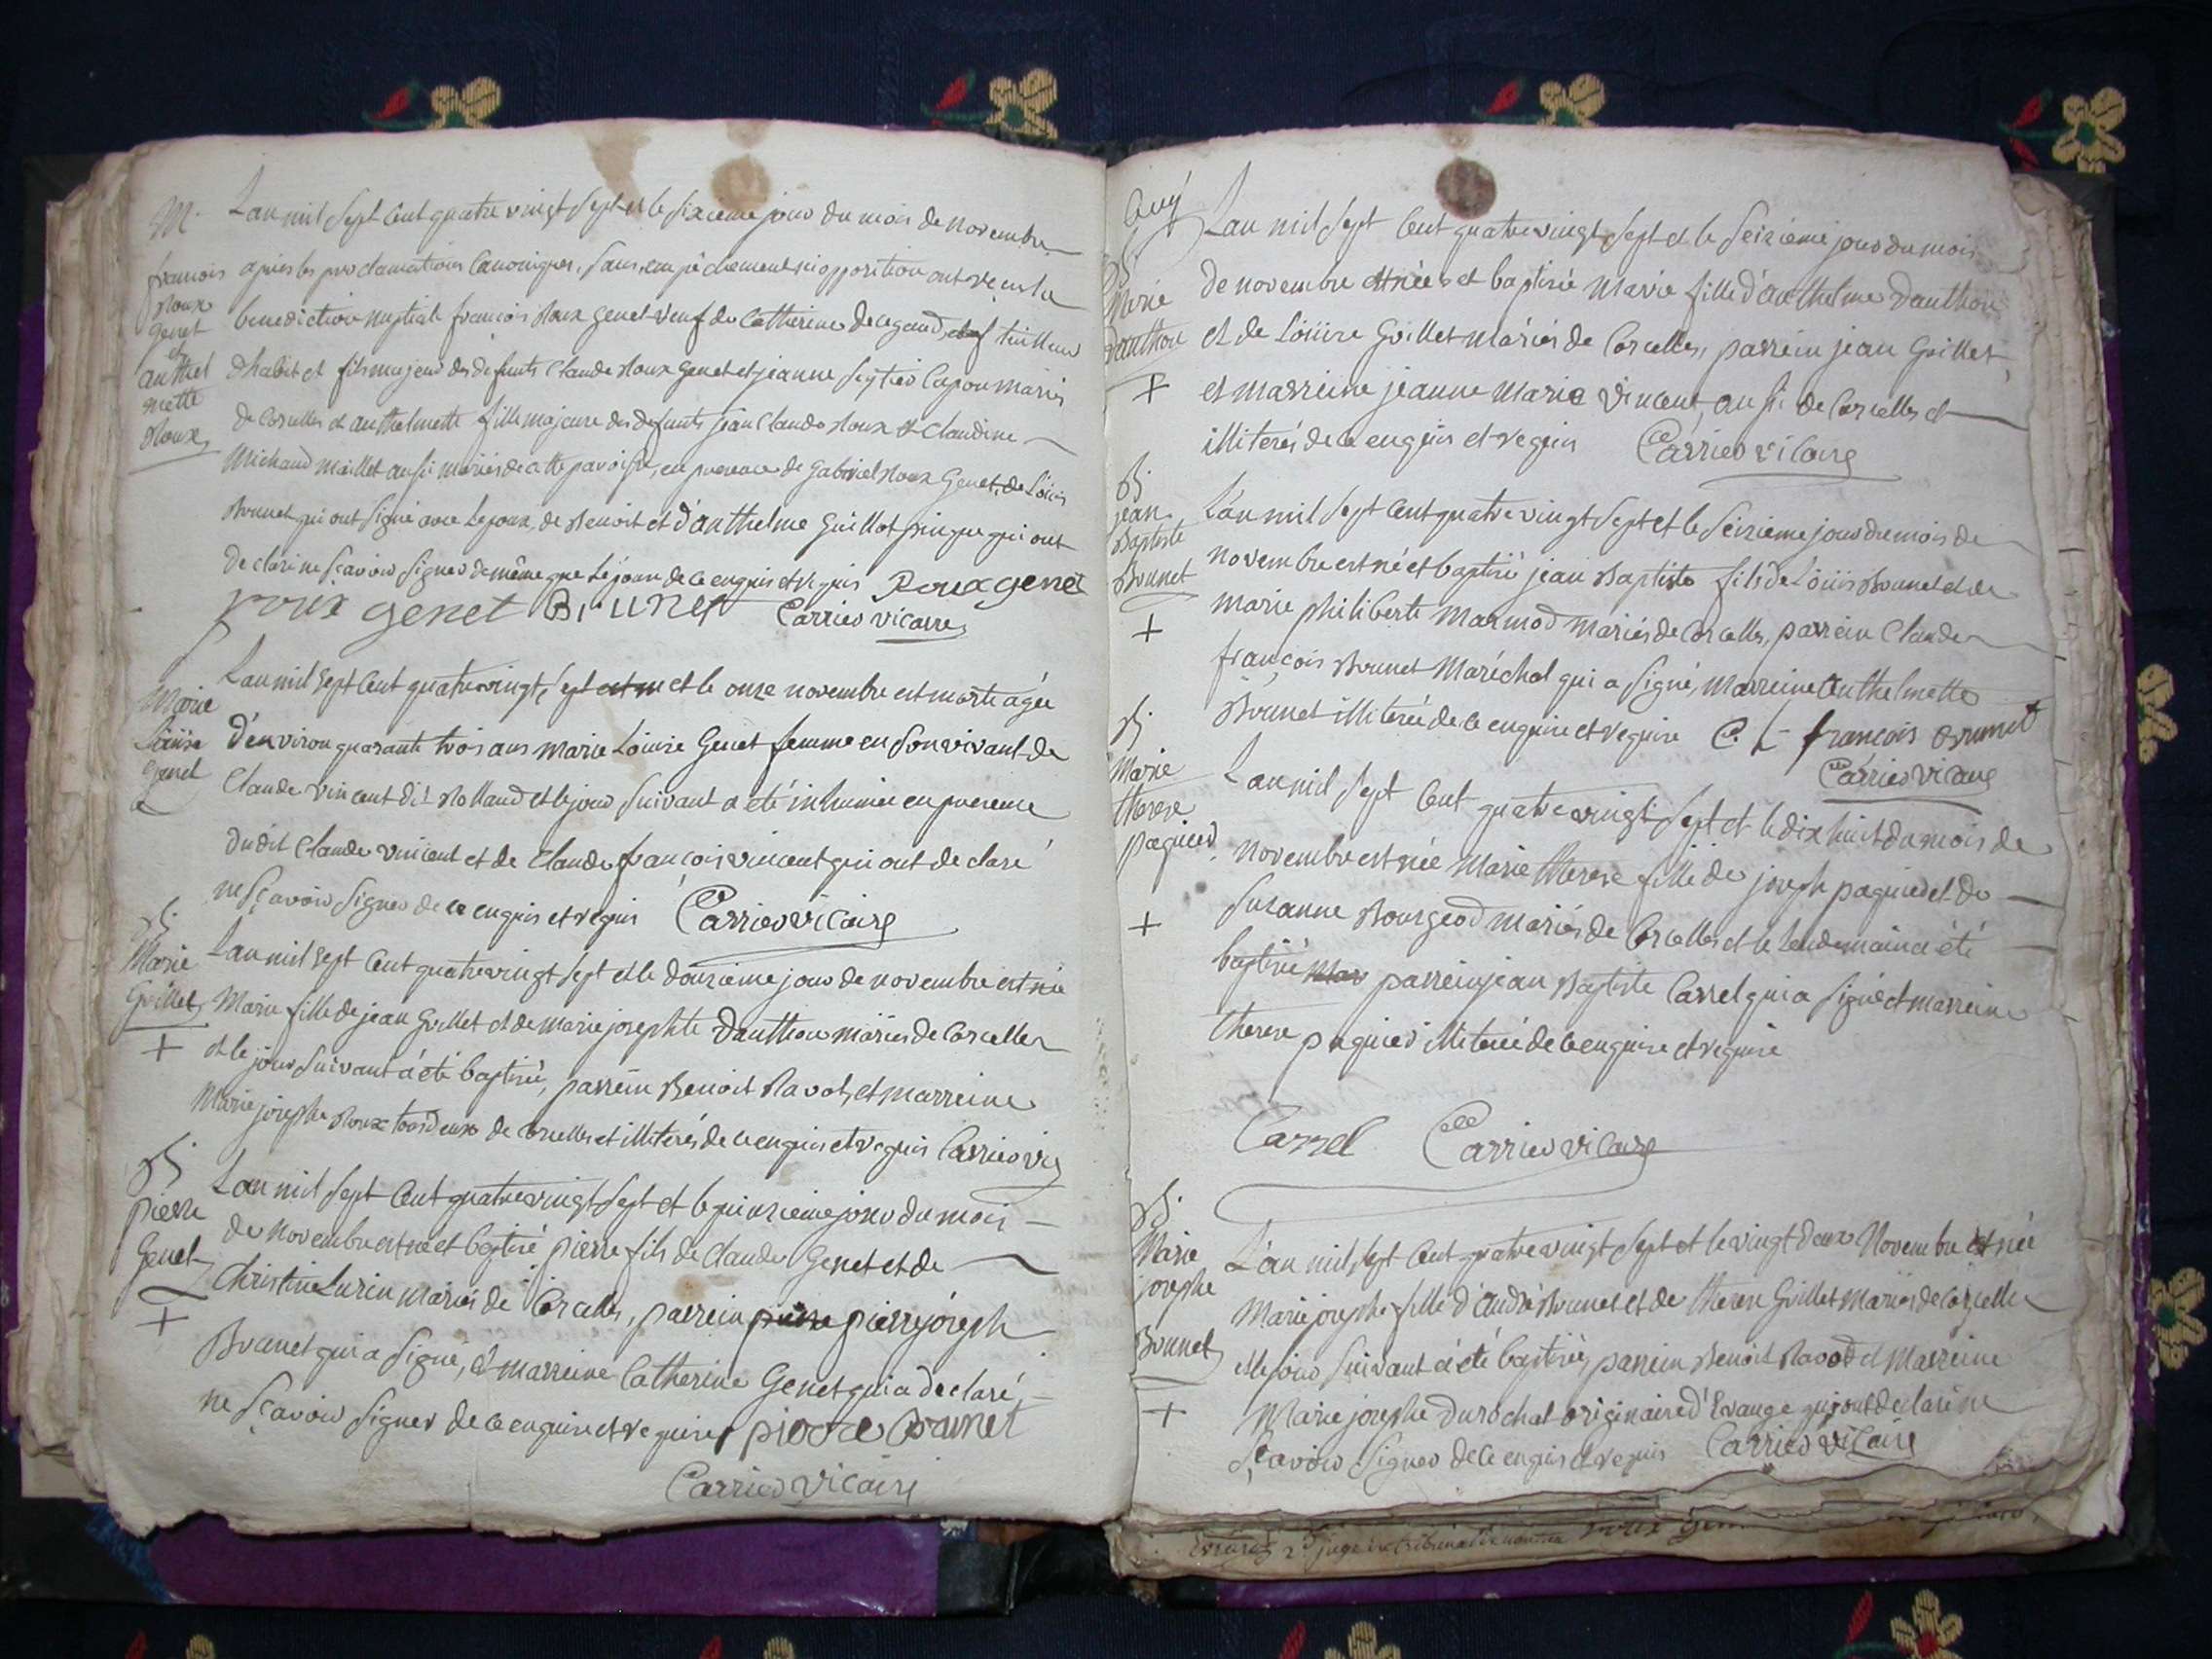 M.
françois
Roux
genet
et
anthel
mette
Roux
L'an mil sept cent quatre vingt sept et le sixieme jour du mois de novembre
apres les proclamations canoniques, sans empêchement ni opposition ont reçu la
benediction nuptiale françois Roux genet veuf de Catherine tailleur
d'habit et fils majeur des defunts Claude Roux genet et jeanne mariés
de Corcelles et anthelmette fille majeure des defunts jean Claude Roux et Claudine
Michaud maillet aussi mariés de cette paroisse, en presence de gabriel Roux Genet, de Loüis
Brunet qui ont signé avec de Benoit et d'anthelme Guillot qui ont
declaré ne sçavoir signer de même que de ce enquis et requis Roux genet
roux genet Brunet Carrier vicaire
Marie
Loüise
genet
L'an mil sept cent quatre vingt sept et le onze novembre est morte agée
d'environ quarante trois ans marie Loüise Genet femme en son vivant de
Claude vincent dit Rolland et le jour suivant a été inhumée en presence
dudit Claude vincent et de Claude françois vincent qui ont declaré
ne sçavoir signer de ce enquis et requis Carrier vicaire
B.
Marie
Goillet
+
L'an mil sept cent quatre vingt sept et le douzieme jour de novembre est née
Marie fille de jean Goillet et de marie josephte Danthon mariés de Corcelles
et le jour suivant a été baptisée, parrein Benoit Ravot, et marreine
Marie josephe Roux tous deux de Corcelles et illiterés de ce enquis et requis Carrier vic
B
pierre
Genet
+
L'an mil sept cent quatre vingt sept et le quinzieme jour du mois
de novembre est né et baptisé pierre fils de Claude Genet et de
Christine Lurin mariés de Corcelles, parrein pierre pierre joseph
Brunet qui a signé, et marreine Catherine Genet qui a declaré
ne sçavoir signer de ce enquise et requise pierre Brunet
Carrier vicaire
B
Marie
Danthon
+
L'an mil sept cent quatre vingt sept et le seizieme jour du mois
de novembre est née et baptisée Marie fille d'anthelme Danthon
et de Loüise Goillet mariés de Corcelles, parrein jean Goillet
et marreine jeanne Marie Vincent, aussi de Corcelles et
illiterés de ce enquis et requis Carrier vicaire
B
jean
Baptiste
Brunet
+
L'an mil sept cent quatre vingt sept et le seizieme jour du mois de
novembre est né et baptisé jean Baptiste fils de Loüis Brunet et de
marie philiberte Marmod mariés de Corcelles, parrein Claude
françois Brunet Maréchal qui a signé, Marreine Anthelmette
Brunet illiterée de ce enquise et requise C L françois Brunet
Carrier vicaire
B.
Marie
therese
paquier
+
L'an mil sept cent quatre vingt sept et le dix huit du mois de
novembre est née Marie therese fille de joseph paquier et de
Suzanne Bourgeod mariés de Corcelles et le lendemain a été
baptisée Mar parrein jean Baptiste Carrel qui a signé et marreine
therese paquier illiterée de ce enquise et requise
Carrel Carrier vicaire
B.
Marie
josephe
Brunet
+
L'an mil sept cent quatre vingt sept et le vingt deux Novembre est née
Marie josephe fille d'André Brunet et de therese Goillet mariés de Corcelles
et le jour suivant a été baptisée, parrein Benoit Ravod et Marreine
Marie josephe Durochat originaire d'Evange qui ont declaré ne
sçavoir signer de ce enquis et requis Carrier vicaire